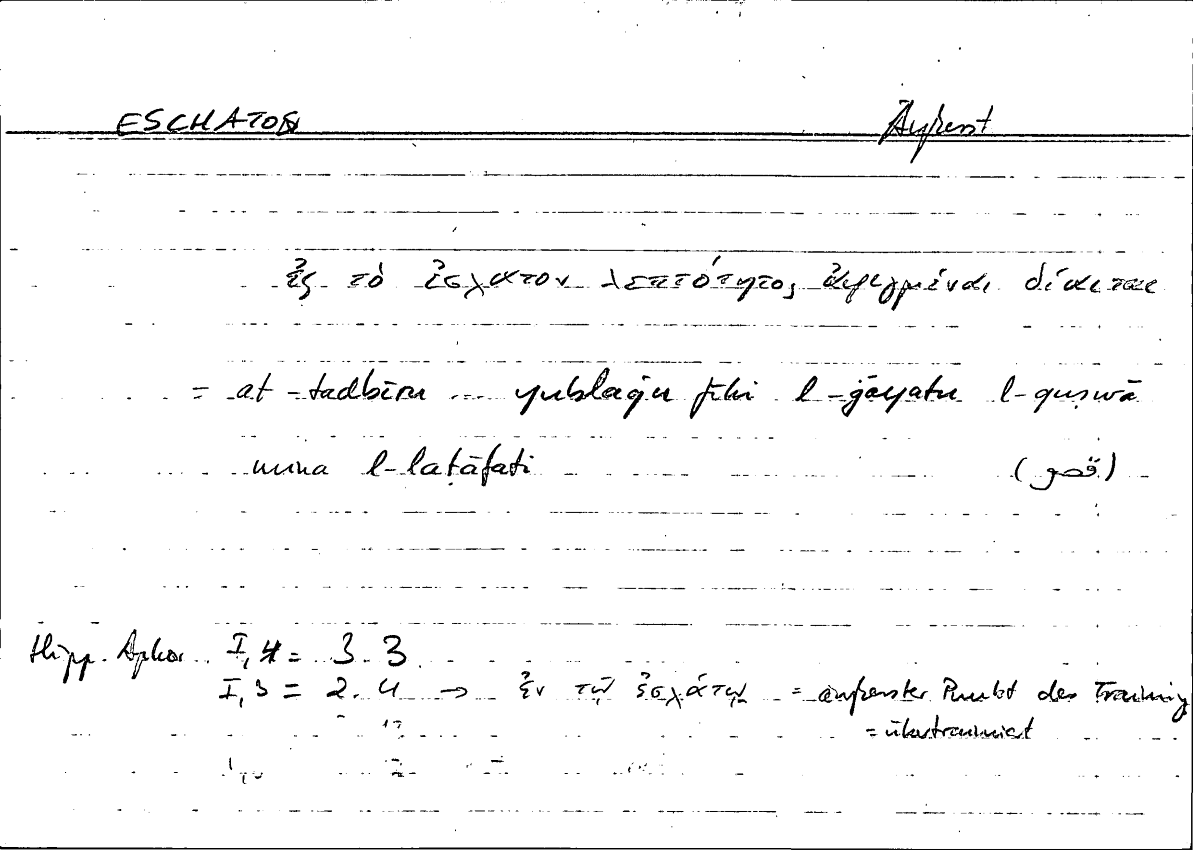 ESCHATON äußerst
ἐς τὸ ἔσχατον λεπτότητος ἀφιγμέναι δίαιται
= at-tadbīru ... yublaġu fīhi l-ġāyatu l-quṣwā
mina l-laṭāfati (قصو)
Hipp. Aphor. I,4 = 3.3
I,3 = 2.4 → ἐν τῷ ἐσχάτῳ = äußerster Punkt des Training
= übertrainiert